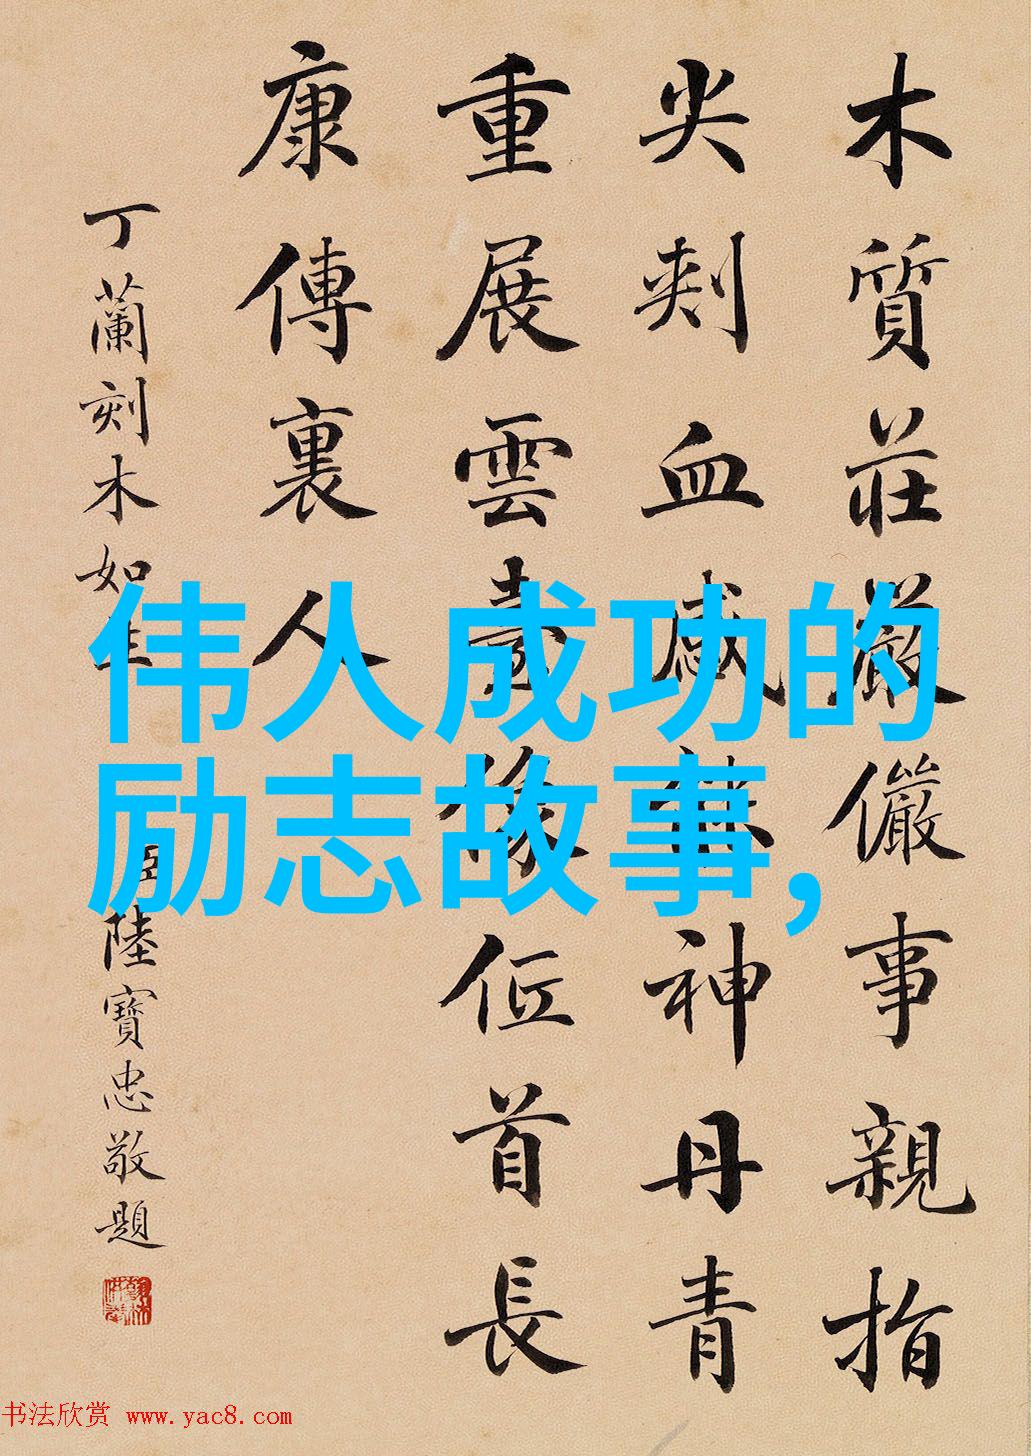 木質莊嚴儼事親指
尖刾血感神丹青
重展雲臺像首長
康傳裏人
丁蘭刻木如生
臣陸寶忠敬題
伟人成功的
励志故事,
书法欣赏 www.yac8.com